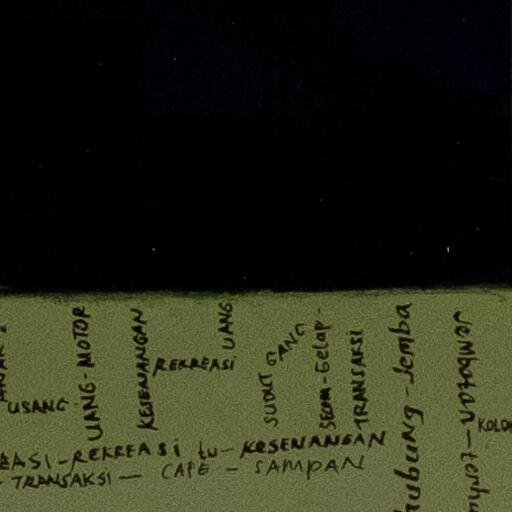 USANG
UANG MOTOR
KESENANGAN
REKREASI
UANG
SUDUT GANG
TRANSAKSI
hubung-Jemba
Jembatan-terhu
KOLO
EASI-REKREASI tu-KESENANGAN
- TRANSAKSI - CAFE - SAMPAN